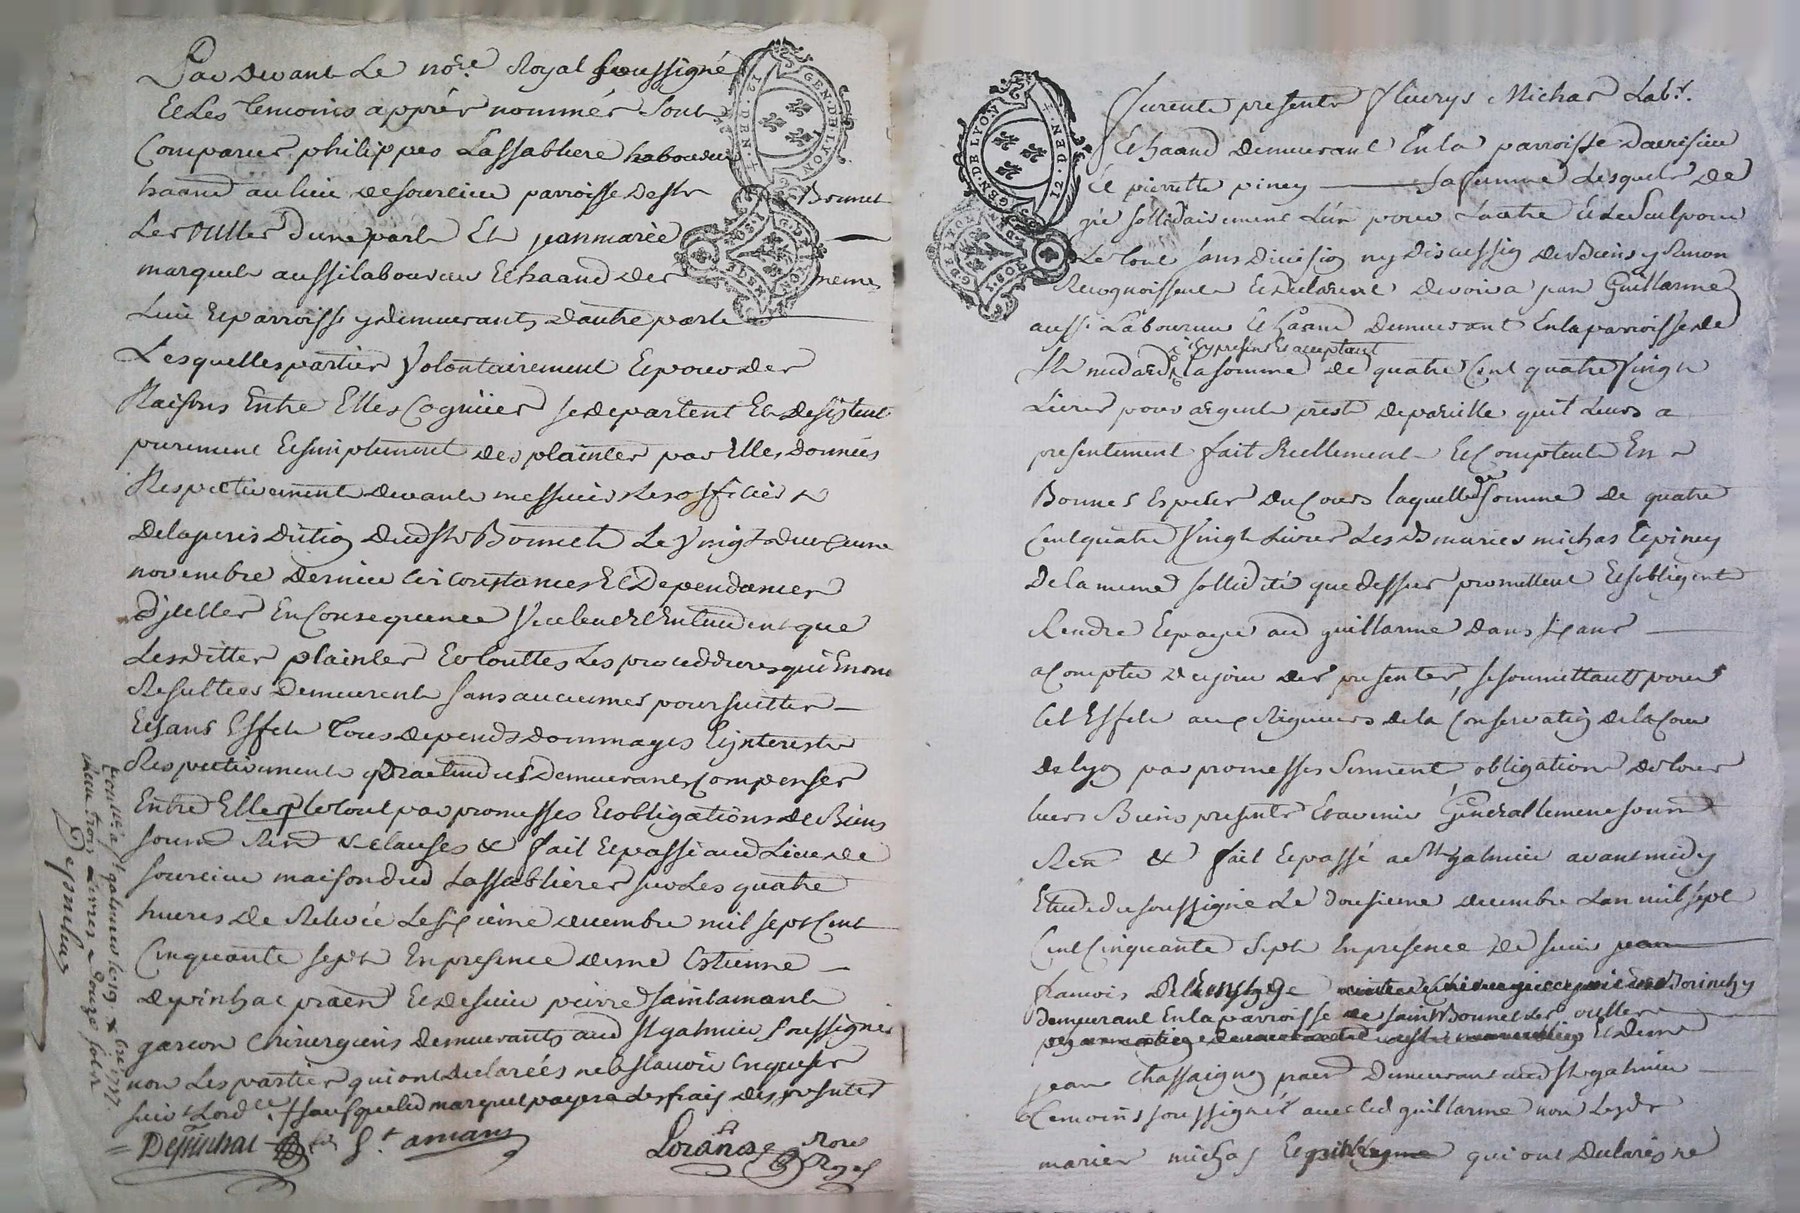 Par devant Le no.re Royal soussigné
Et Les temoins apprés nommés sont
Comparus philippes Lassabliere laboureur
haand au lieu de sourcieu parroisse de st Bonnet
Les oulles d'une part Et jean marie
marquet aussi laboureur Et haand des meme
Lieu Et parroisse y demeurants d'autre part
Lesquelles parties volontairement Et pour des
Raisons Entre Elles Cognües se departent Et desistent
purement Et simplement des plaintes par Elles données
Respectivement devant messieurs les officiers
de la jurisdiction dud st Bonnet Le vingt deuxieme
novembre dernier Circonstances Et Dependances
d'jcelles En Consequence veulent Et Entendent que
Lesdittes plaintes Et touttes Les proceddures qui En ont
Resultées Demeurent sans aucunes poursuittes
Et sans Effet tous depends dommages Et jnterests
Respectivement pretendus Demeurants Compensés
Entre Elles le tout par promesses Et obligations de Biens
soum Ren & clauses & fait Et passé aud Lieu de
sourcieu maison dud Lassabliere sur Les quatre
heures de Relevée Le sixieme decembre mil sept Cent
Cinquante sept En presence de me Estienne
depinhac praen Et de sieur pierre saint amant
garcon chirurgiens demeurants aud st galmier soussignes
non Les parties qui ont declarées ne le scavoir Enquises
suiv.t Lord.ce sauf que led marquet payera les frais des presentes
Depinhac St amans
Royal
Contlé a st galmier le 19 xbre 1757
Receu trois Livres douze sols
furent presents fleurys Michas Lab.r
Et haand demeurant En la parroisse d'aveisieu
Et pierrette piney sa femme Lesquels de
gré sollidairement L'un pour L'autre Et le seul pour
Le tout sans division ny discussion de Biens y Renon
Recognoissent Et declarent devoir a jean Guillarme
aussi Laboureur Et haand Demeurant En la parroisse de
icy present Et acceptant
St medard La somme de quatre Cent quatre vingt
Livres pour argent prest de pareille qu'il Leurs a
presentement fait Reellement Et Comptent En
Bonnes Especes du Cours laquelle somme de quatre
Cent quatre vingt Livres Les d maries michas Et piney
De la meme solidité que dessus promettent Et s'obligent
Rendre Et payer aud guillarme dans six ans
a Compter de ce jour des presentes, se soumittants pour
Cet Effet aux Rigueurs de la Conservation de la Cour
de lyon par promesses serment obligation de tous
leurs Biens presents Et avenir Generallement soum
Ren & fait Et passé a st galmier avant midy
Etude du soussigné Le dousieme decembre L'an mil sept
Cent Cinquante sept En presence de sieur jean
francois
demeurant En la parroisse de saint Bonnet Les oulles
Et de me
jean Chassaigny praen Demeurant aud st galmier
temoins soussignés avec led guillarme non Lesds
maries michas Et qui ont declarés ne
GEN · DE LYON
12 · DEN ·
GEN · DE LYON
12 · DEN ·